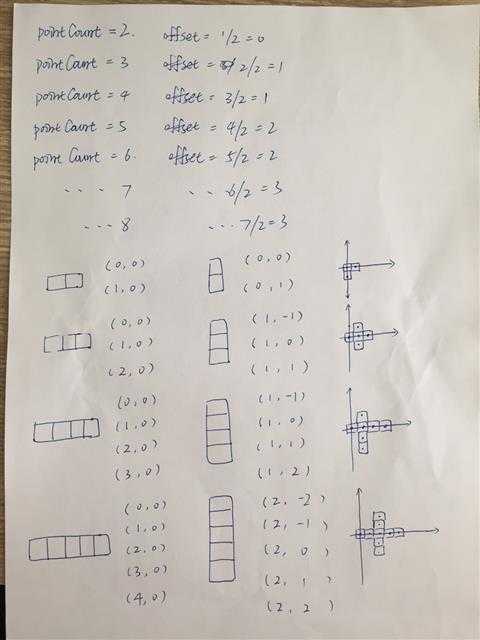 pointCount = 2. offset = 1/2 = 0
pointCount = 3 offset = 2/2 = 1
pointCount = 4 offset = 3/2 = 1
pointCount = 5 offset = 4/2 = 2
point Count = 6. offset = 5/2 = 2
.... 7 ... 6/2 = 3
... 8 ... 7/2 = 3
(0,0) (0,0)
(1,0) (0,1)
(0,0) (1,-1)
(1,0) (1,0)
(2,0) (1,1)
(0,0) (1,-1)
(1,0) (1,0)
(2,0) (1,1)
(3,0) (1,2)
(0,0) (2,-2)
(1,0) (2,-1)
(2,0) (2,0)
(3,0) (2,1)
(4,0) (2,2)